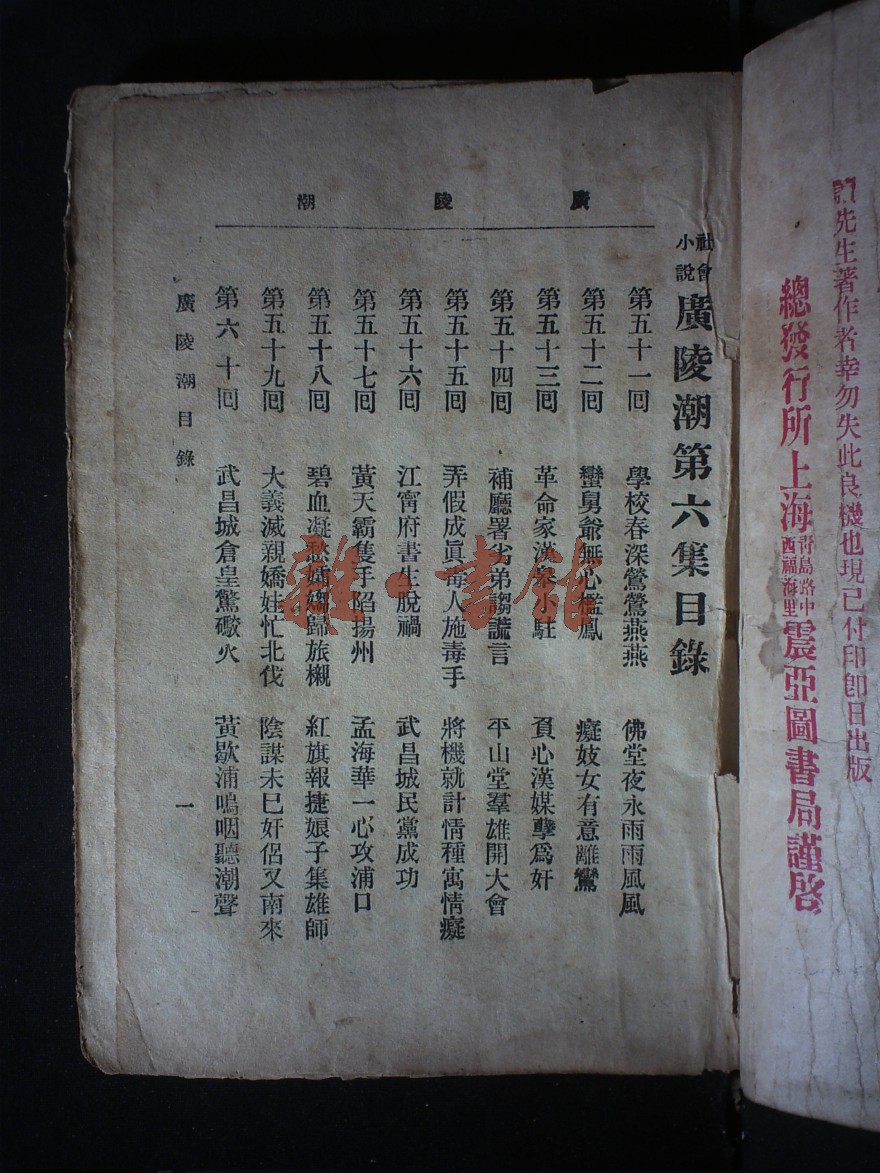 先生著作者幸勿失此良機也現已付印卽日出版
總發行所上海青島路中西福海里震亞圖書局謹啓
廣陵潮
社會小說廣陵潮第六集目錄
第五十一回 學校春深鶯鶯燕燕 佛堂夜永雨雨風風
第五十二回 蠻舅爺無心檻鳳 癡妓女有意離鸞
第五十三回 革命家漢皋小駐 負心漢媒孽爲奸
第五十四回 補廳署劣弟謅謊言 平山堂羣雄開大會
第五十五回 弄假成眞毒人施毒手 將機就計情種寓情癡
第五十六回 江甯府書生脫禍 武昌城民黨成功
第五十七回 黃天霸隻手陷揚州 孟海華一心攻浦口
第五十八回 碧血凝愁孀歸旅櫬 紅旗報捷娘子集雄師
第五十九回 大義滅親嬌娃忙北伐 陰謀未已奸侶又南來
第六十回 武昌城倉皇驚礮火 黃歇浦嗚咽聽潮聲
廣陵潮目錄
一
雜·書館